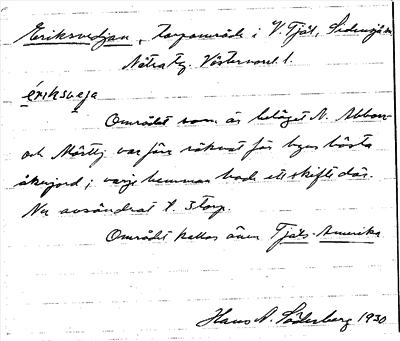 Eriksvedjan, torpområde i V. Fjäl, Sidensjö sn
Nätra tg. Västernorrl. l.
ériksveja
Området som är beläget N. Abborr-
och Mörttj. var förr räknat för byns bästa
åkerjord; varje hemman hade ett skifte där.
Nu avsöndrat t. 3 torp.
Området kallas även Fjäls-Amerika
Hans A. Söderberg 1930